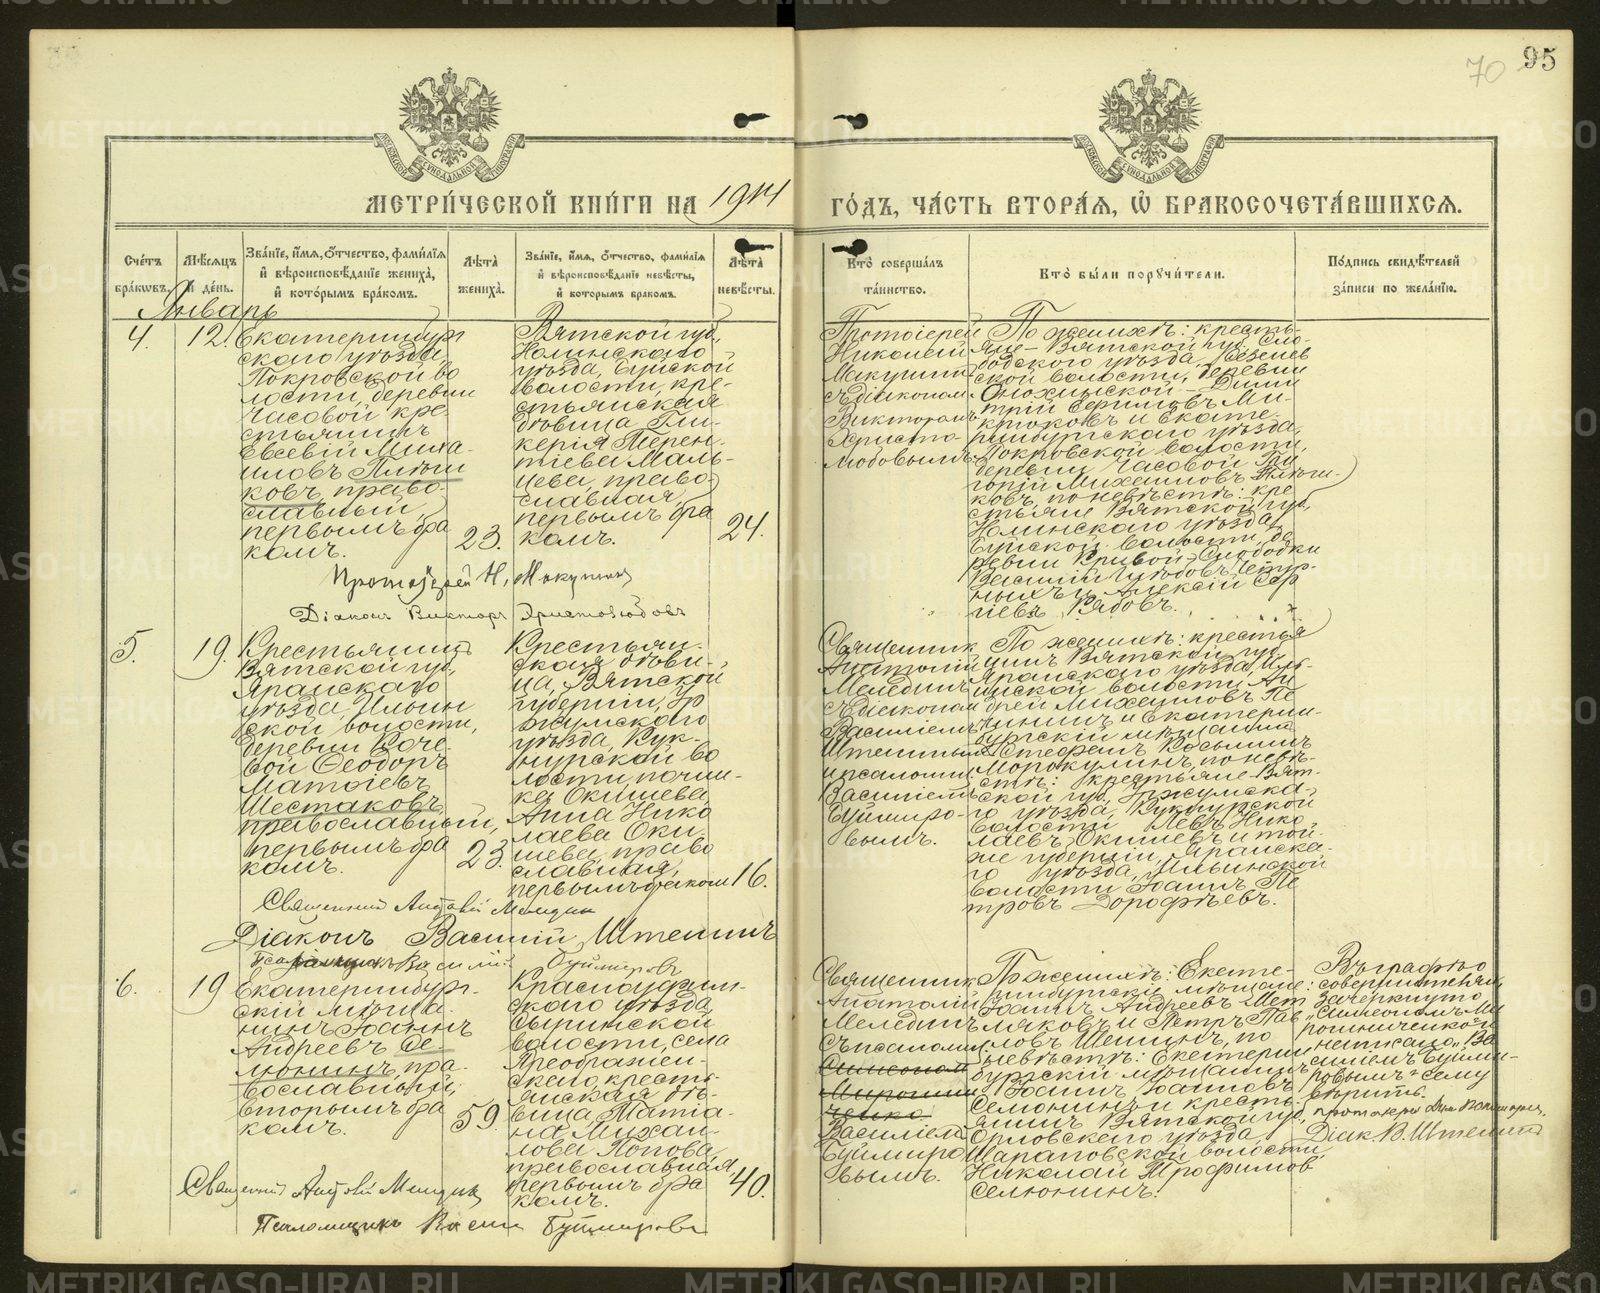 95
70
МЕТРИ́ЧЕСКОЙ КНИ́ГИ НА 1914 ГО́ДЪ, ЧА́СТЬ ВТОРА́Я, Ѽ БРАКОСОЧЕТА́ВШИХСЯ.
Сче́тъ бра́кѡвъ.
Мѣ́сяцъ и де́нь.
Зва́нїе, и́мя, ѻ́тчество, фами́лїя и҆ вѣроисповѣ́данїе жениха̀, и҆ кото́рымъ бра́комъ.
Лѣ́та жениха̀.
Зва́нїе, и́мя, ѻ́тчество, фами́лїя и҆ вѣроисповѣ́данїе невѣ́сты, и҆ кото́рымъ бракомъ.
Лѣ́та невѣ́сты.
Кто̀ соверша́лъ та́инство.
Кто̀ бы́ли порꙋчи́тели.
По́дпись свидѣ́телей за́писи по жела́нїю.
Январь
4.
12.
Екатеринбург
скаго уѣзда
Покровской во
лости, деревни
Часовой кре
стьянинъ
Евсевій Миха
иловъ Плюсн
ковъ, право
славный,
первымъ бра
комъ.
23.
Вятской губ.,
Нолинскаго
уѣзда, Буйской
волости, кре-
стьянская
дѣвица Гли-
керія Терен-
тіева Маль-
цева, право-
славная,
первымъ бра
комъ.
24.
Протоіерей
Николай
Макушин
съ діакономъ
Викторомъ
Христо-
любовымъ
По женихѣ: кресть-
яне Вятской губ. Сло-
бодского уѣзда,
ской волости, деревни
Дими
трій
крюковъ и Екате-
ринбургскаго уѣзда,
Покровской волости,
деревни Часовой
Михаиловъ
ковъ, по невѣстѣ: кре
стьяне Вятской губ.,
Нолинскаго уѣзда,
Буйской волости, де
ревни Кривой-Слободки
Василій
и Алексій Сер
гіевъ Рябовъ.
Протоіерей Н. Макушин
Діаконъ Викторъ Христолюбовъ
5.
19.
Крестьянинъ
Вятской губ.
Яранскаго
уѣзда, Ильин
ской волости,
деревни Коче-
вой Ѳеодоръ
Матѳіевъ
Шестаковъ,
православный,
первымъ бра
комъ.
23.
Крестьян-
ская дѣви-
ца, Вятской
губерніи, Ур
жумскаго
уѣзда, Кук-
нурской во
лости, почин-
ка Окишева,
Анна Нико
лаева Оки-
шева, право
славная,
первымъ бракомъ
16.
Священник
Анатолій
Меледин
съ діакономъ
Василіемъ
Штенинымъ
и псаломщ.
Василіемъ
Буймиро-
вымъ.
По женихѣ: крестья
нинъ Вятской губ.
Яранскаго уѣзда, Иль-
инской волости Ан
дрей Михаиловъ Пе
чининъ и Екатерин-
бургскій мѣщанинъ
Стефанъ Косьминъ
Морокулинъ, по невѣ-
стѣ: крестьяне Вят-
ской губ. Уржумска-
го уѣзда, Кукнурской
волости Левъ Нико
лаевъ Окишевъ и той-
же губерніи, Яранска-
го уѣзда, Ильинской
волости Іоаннъ Пе
тровъ Дорофѣевъ.
Священникъ Анатолій Меледин
Діаконъ Василій Штенинъ
Псаломщикъ Василій Буймировъ
6.
19
Екатеринбург-
скій мѣща-
нинъ Іоаннъ
Андреевъ Се-
мюнинъ, пра-
вославный,
вторымъ бра
комъ.
59.
Красноуфим-
скаго уѣзда
Сыринской
волости, села
Преображен-
скаго, кресть-
янская дѣ-
вица Татіа-
на Михаи-
лова Попова,
православная,
первымъ бра
комъ.
40.
Священник
Анатолій
Меледин
съ псаломщ.
Симеономъ
Мирошни
ченко
Василіемъ
Буймиро
вымъ.
По женихѣ: Екате-
ринбургскіе мѣщане:
Іоаннъ Андреевъ Шет
ляковъ и Петръ Пав
ловъ Шешинъ, по
невѣстѣ: Екатерин
бургскій мѣщанинъ
Іоаннъ Іоанновъ
Семюнинъ и кресть-
янинъ Вятской губ.
Орловскаго уѣзда,
Шараповской волости,
Николай Трофимов
Селюнинъ.
Въ графѣ о
совершителях
зачеркнуто
„Симеономъ Ми
рошниченко" и
написано „Ва
силіемъ Буйми-
ровымъ" сему
вѣрить.
Діак. В. Штенинъ
Священникъ Анатолій Меледин
Псаломщикъ Василій Буймировъ
METRIKI.GASO-URAL.RU